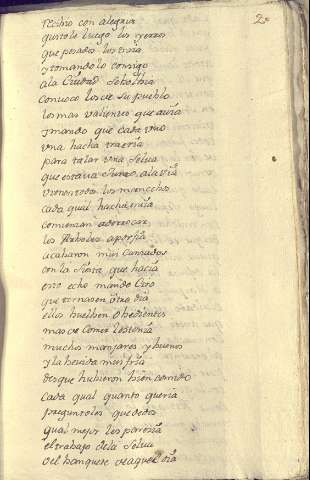 2
recibio con alegria
quitole luego los yerros
que pesados los traia
y tomandolo consigo
a la Ciudad se bolbia
convoco los de su pueblo
los mas valientes que auia
y mando que cada uno
una hacha traeria
para talar una Selua
que estaua Junto a la via
vinieron todos los mancebos
cada qual hacha traia
comienzan a derrocar
los Arboles a porfia
acabaron mui Cansados
con la siesta que hacia
esto echo mando Ciro
que tornasen otro dia
ellos buelben obedientes
mas de Comer les tenia
muchos manjares y buenos
y la bevida mui fria
des que hubieron bien comido
cada qual quanto queria
preguntoles que de dos
qual mejor les parezia
el trabajo de la Selua
o el banquete de aquel dia